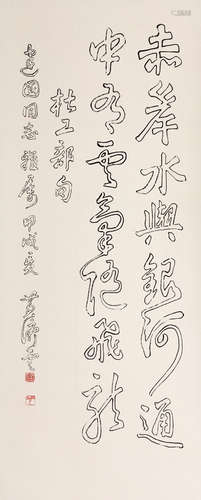 赤岸水與銀河通
中有雲氣隨飛龍
杜工部句
建國同志雅屬 甲戌夏